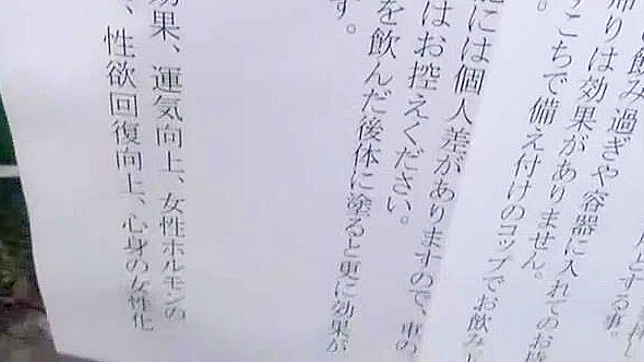 とする事。
飲み過ぎや容器に入れてのお
帰りは効果がありません。
こちで備え付けのコップでお飲み
。
には個人差がありますので、
はお控えください。
を飲んだ後体に塗ると更に効果が
す。
効果、運気向上、女性ホルモンの
、性欲回復向上、心身の女性化